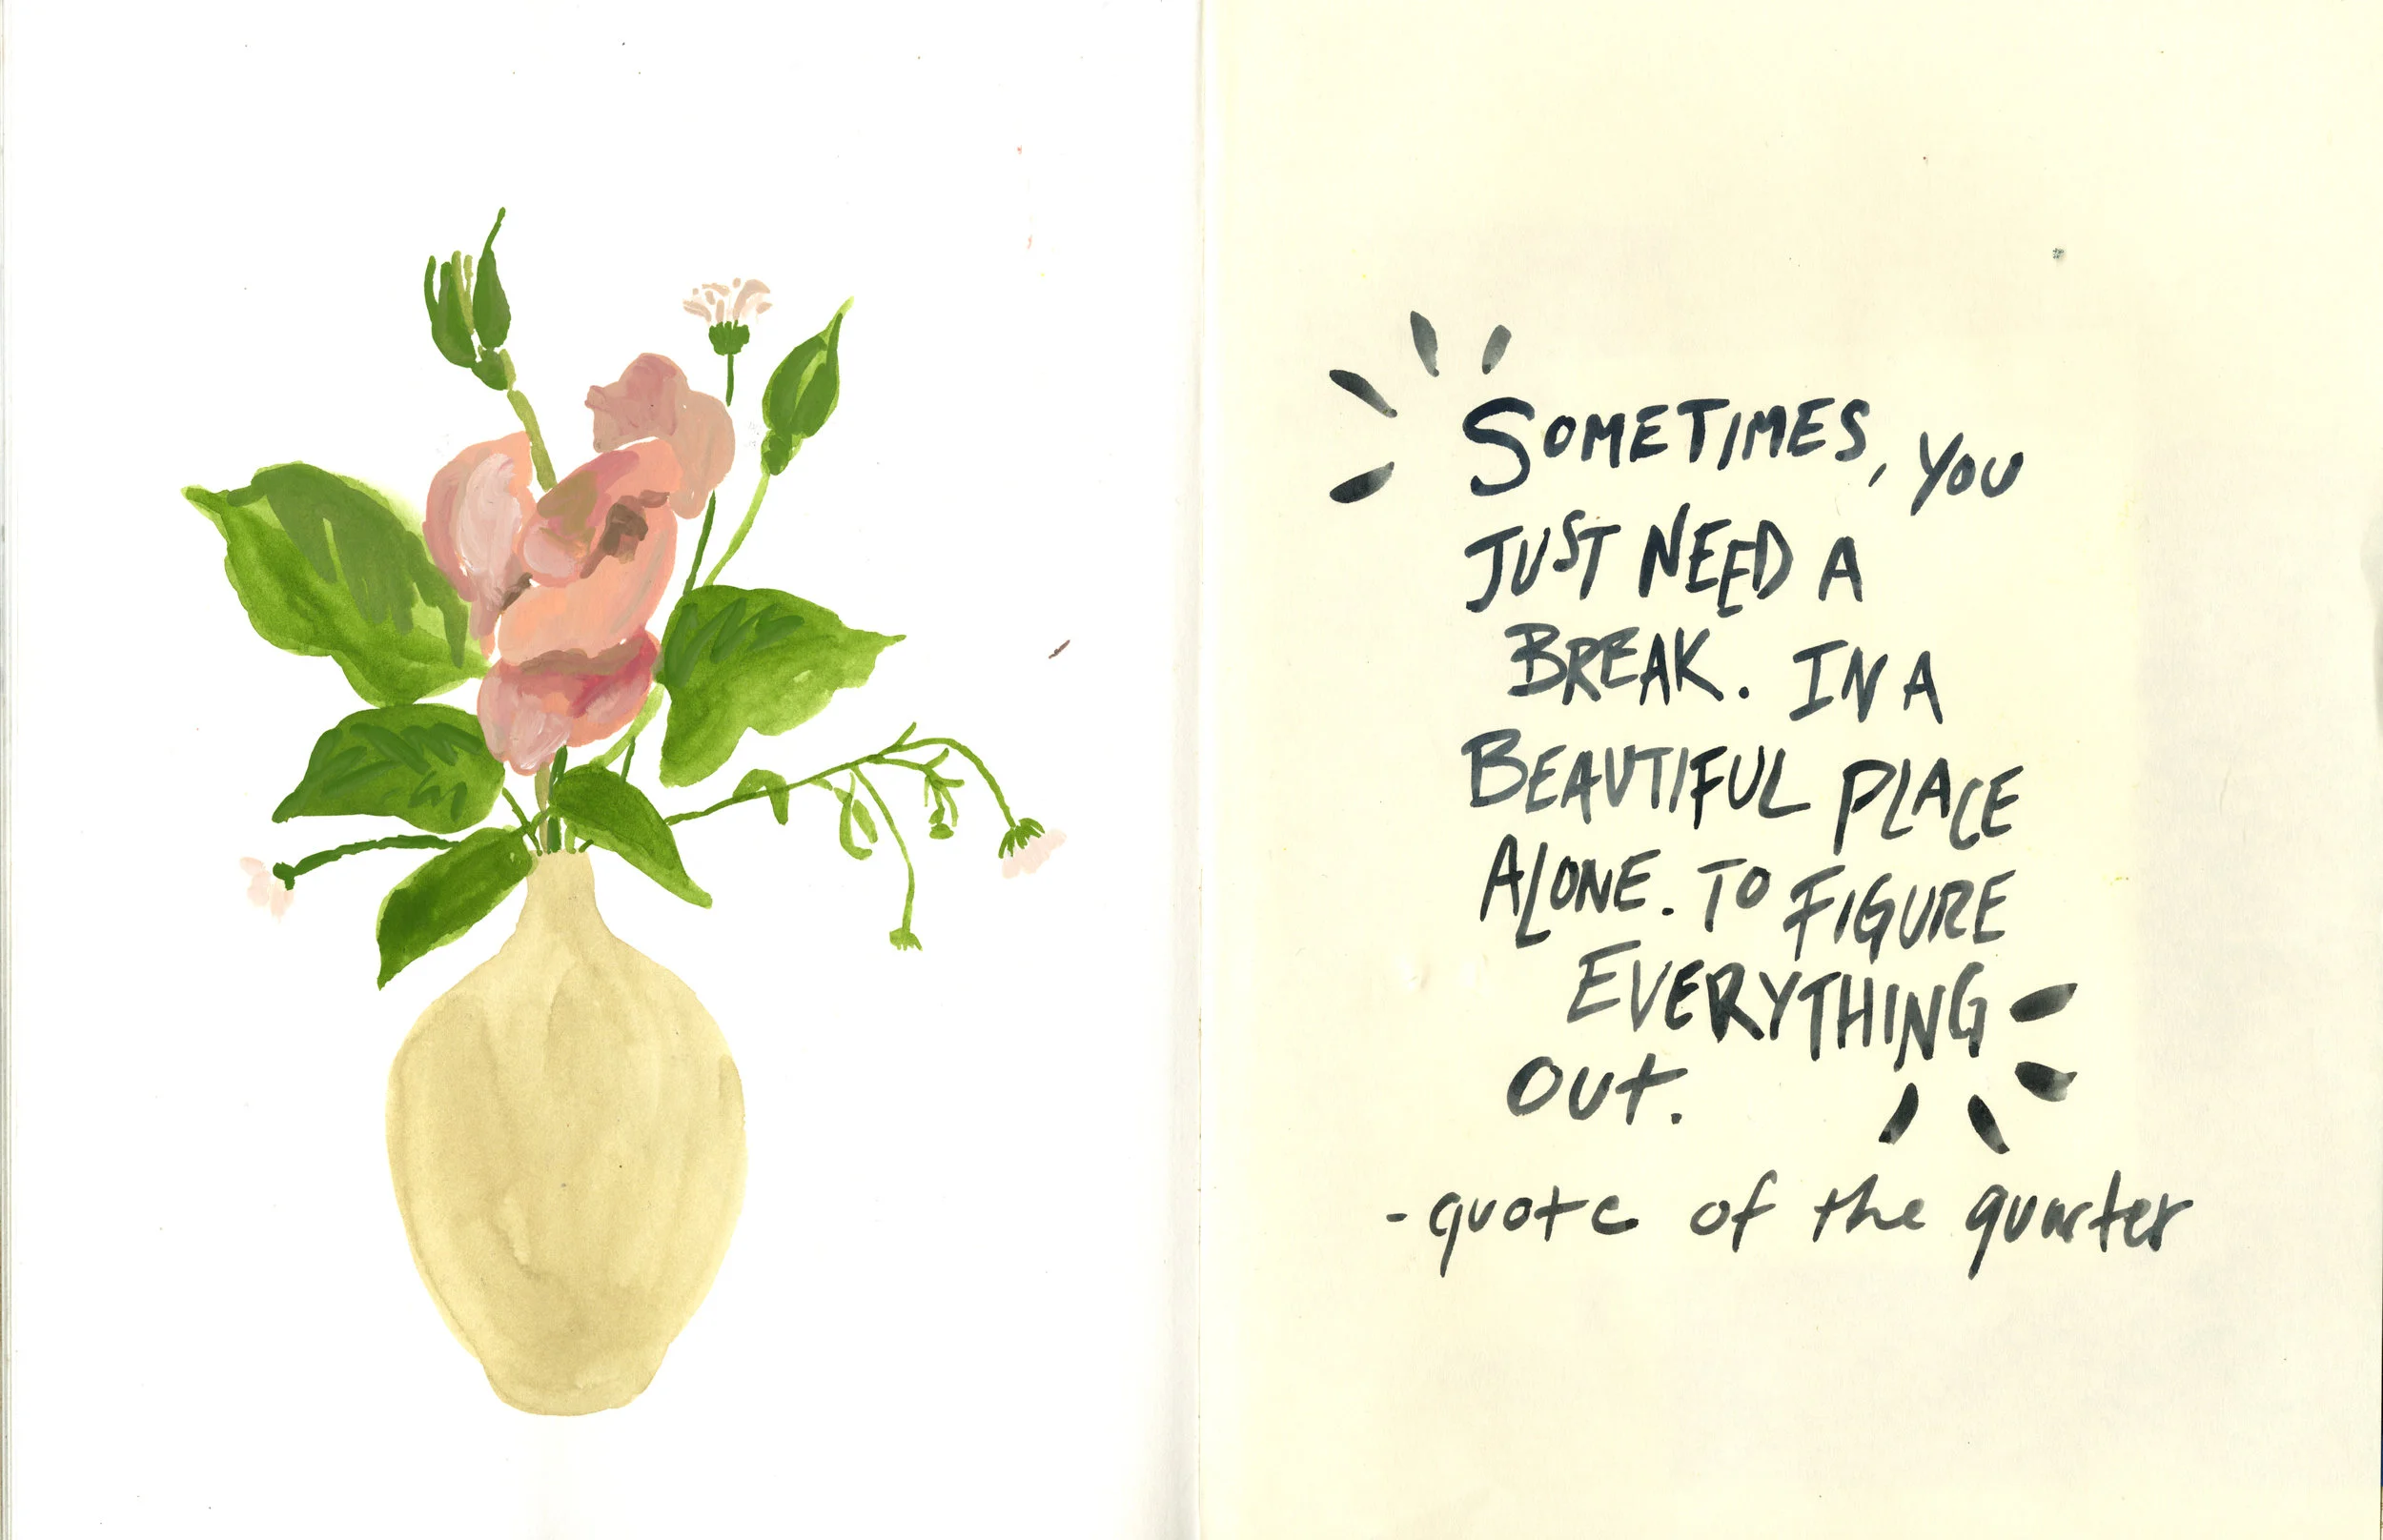 SOMETIMES, YOU
JUST NEED A
BREAK. IN A
BEAUTIFUL PLACE
ALONE. TO FIGURE
EVERYTHING
OUt.
-quote of the quarter